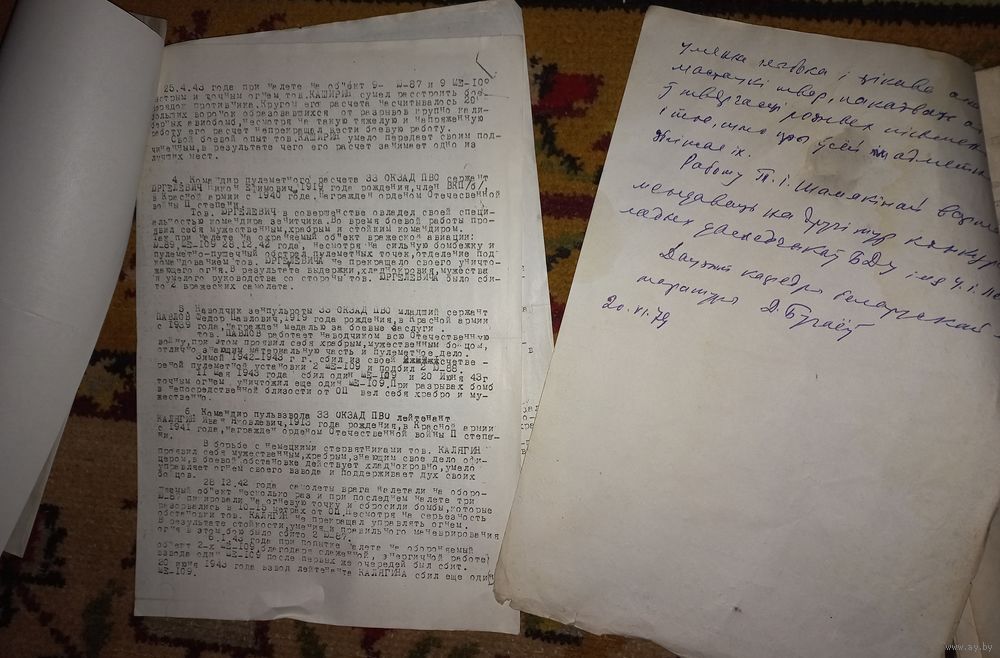 25.4.43 года при налете на об'ект 9- Ю-87 и 9 МЕ-10
точным огнем тов.КАШИРИН сумел расстроить бое-
порядок противника.Кругом его расчета насчитывалось 20
больших воронок образовавшихся от разрывов крупно кали-
берных авиабомб,несмотря на такую тяжелую и напряженную
работу его расчет непрекращал вести боевую работу.
Свой боевой опыт тов.КАШИРИН умело передает своим под-
чиненным,в результате чего его расчет занимает одно из
лучших мест.
4. Командир пулеметного расчета 33 ОКЗАД ПВО сержант
ЮРГЕЛЕВИЧ Никон Ефимович,1919 года рождения,член ВКП/б/,
в Красной армии с 1940 года,награжден орденом Отечественной
войны П степени.
Тов. ЮРГЕЛЕВИЧ в совершенстве овладел своей специ-
альностью командира зенитчика.Во время боевой работы про-
явил себя мужественным,храбрым и стойким командиром.
Так при налете на охраняемый об'ект вражеской авиации:
Ю-88,МЕ-109 28.12.42 года, несмотря на сильную бомбежку и
пулеметно-пушечный обстрел пулеметных точек,отделение под
командованием тов. ЮРГЕЛЕВИЧА не прекращало своего уничто-
жающего огня.В результате выдержки,хладнокровия,мужества
и умелого руководства со стороны тов. ЮРГЕЛЕВИЧА было сби-
то 2 вражеских самолета.
Наводчик зенпульроты 33 ОКЗАД ПВО младший сержант
ПАВЛОВ Федор Павлович,1919 года рождения,в Красной армии
с 1939 года,награжден медалью за боевые заслуги .
тов. ПАВЛОВ работает наводчиком всю Отечественную
войну,при этом проявил себя храбрым,мужественным бойцом,
отлично знающим материальную часть и пулеметное дело.
Зимой 1942-1943 г г. сбил из своей счетве-
реной пулеметной установки 2 МЕ-109 и подбил 2 Ю-88.
11 мая 1943 года сбил один МЕ-109 и 20 июня 43г
точным огнем уничтожил еще один МЕ-109.При разрывах бомб
в непосредственной близости от ОП вел себя храбро и му-
жественно.
6. Командир пульвзвода 33 ОКЗАД ПВО лейтенант
КАЛЯГИН Иван Яковлевич,1913 года рождения,в Красной армии
с 1941 года,награжден орденом Отечественной войны П степе-
ни.
В борьбе с немецкими стервятниками тов. КАЛЯГИН
проявил себя мужественным,храбрым,знающим свое дело офи-
цером,в боевой обстановке действует хладнокровно,умело
управляет огнем своего взвода и поддерживает дух своих
бойцов.
28 12.42 года самолеты врага налетали на оборо-
няемый об'ект несколько раз и при последнем налете три
Ю-87 пикировали на огневую точку и сбросили бомбы,которые
разорвались в 10-15 метрах от ОП.Несмотря на серьезность
обстановки тов. КАЛЯГИН не прекращал управлять огнем.
В результате стойкости,умения и правильного маневрирования
огня в этом бою было сбито 2 Ю-87.
6.1.43 года при попытке налета на обороняемый
об'ект 2-х МЕ-109,благодаря слаженной, энергичной работе
взвода один МЕ-109 после первых же очередей был сбит.
20 июня 1943 года взвод лейтенанта КАЛЯГИНА сбил еще один
МЕ-109.
і цікава
мастацкі твор, паказваць
і тое, што ва ўсёй
Работу Т.І. Шамякінай
мендаваць на другі тур
БДУ імя У.І. Ле
Дацэнт кафедры беларускай
тературы Д. Бугаёў
20.VI.79
www.ay.by